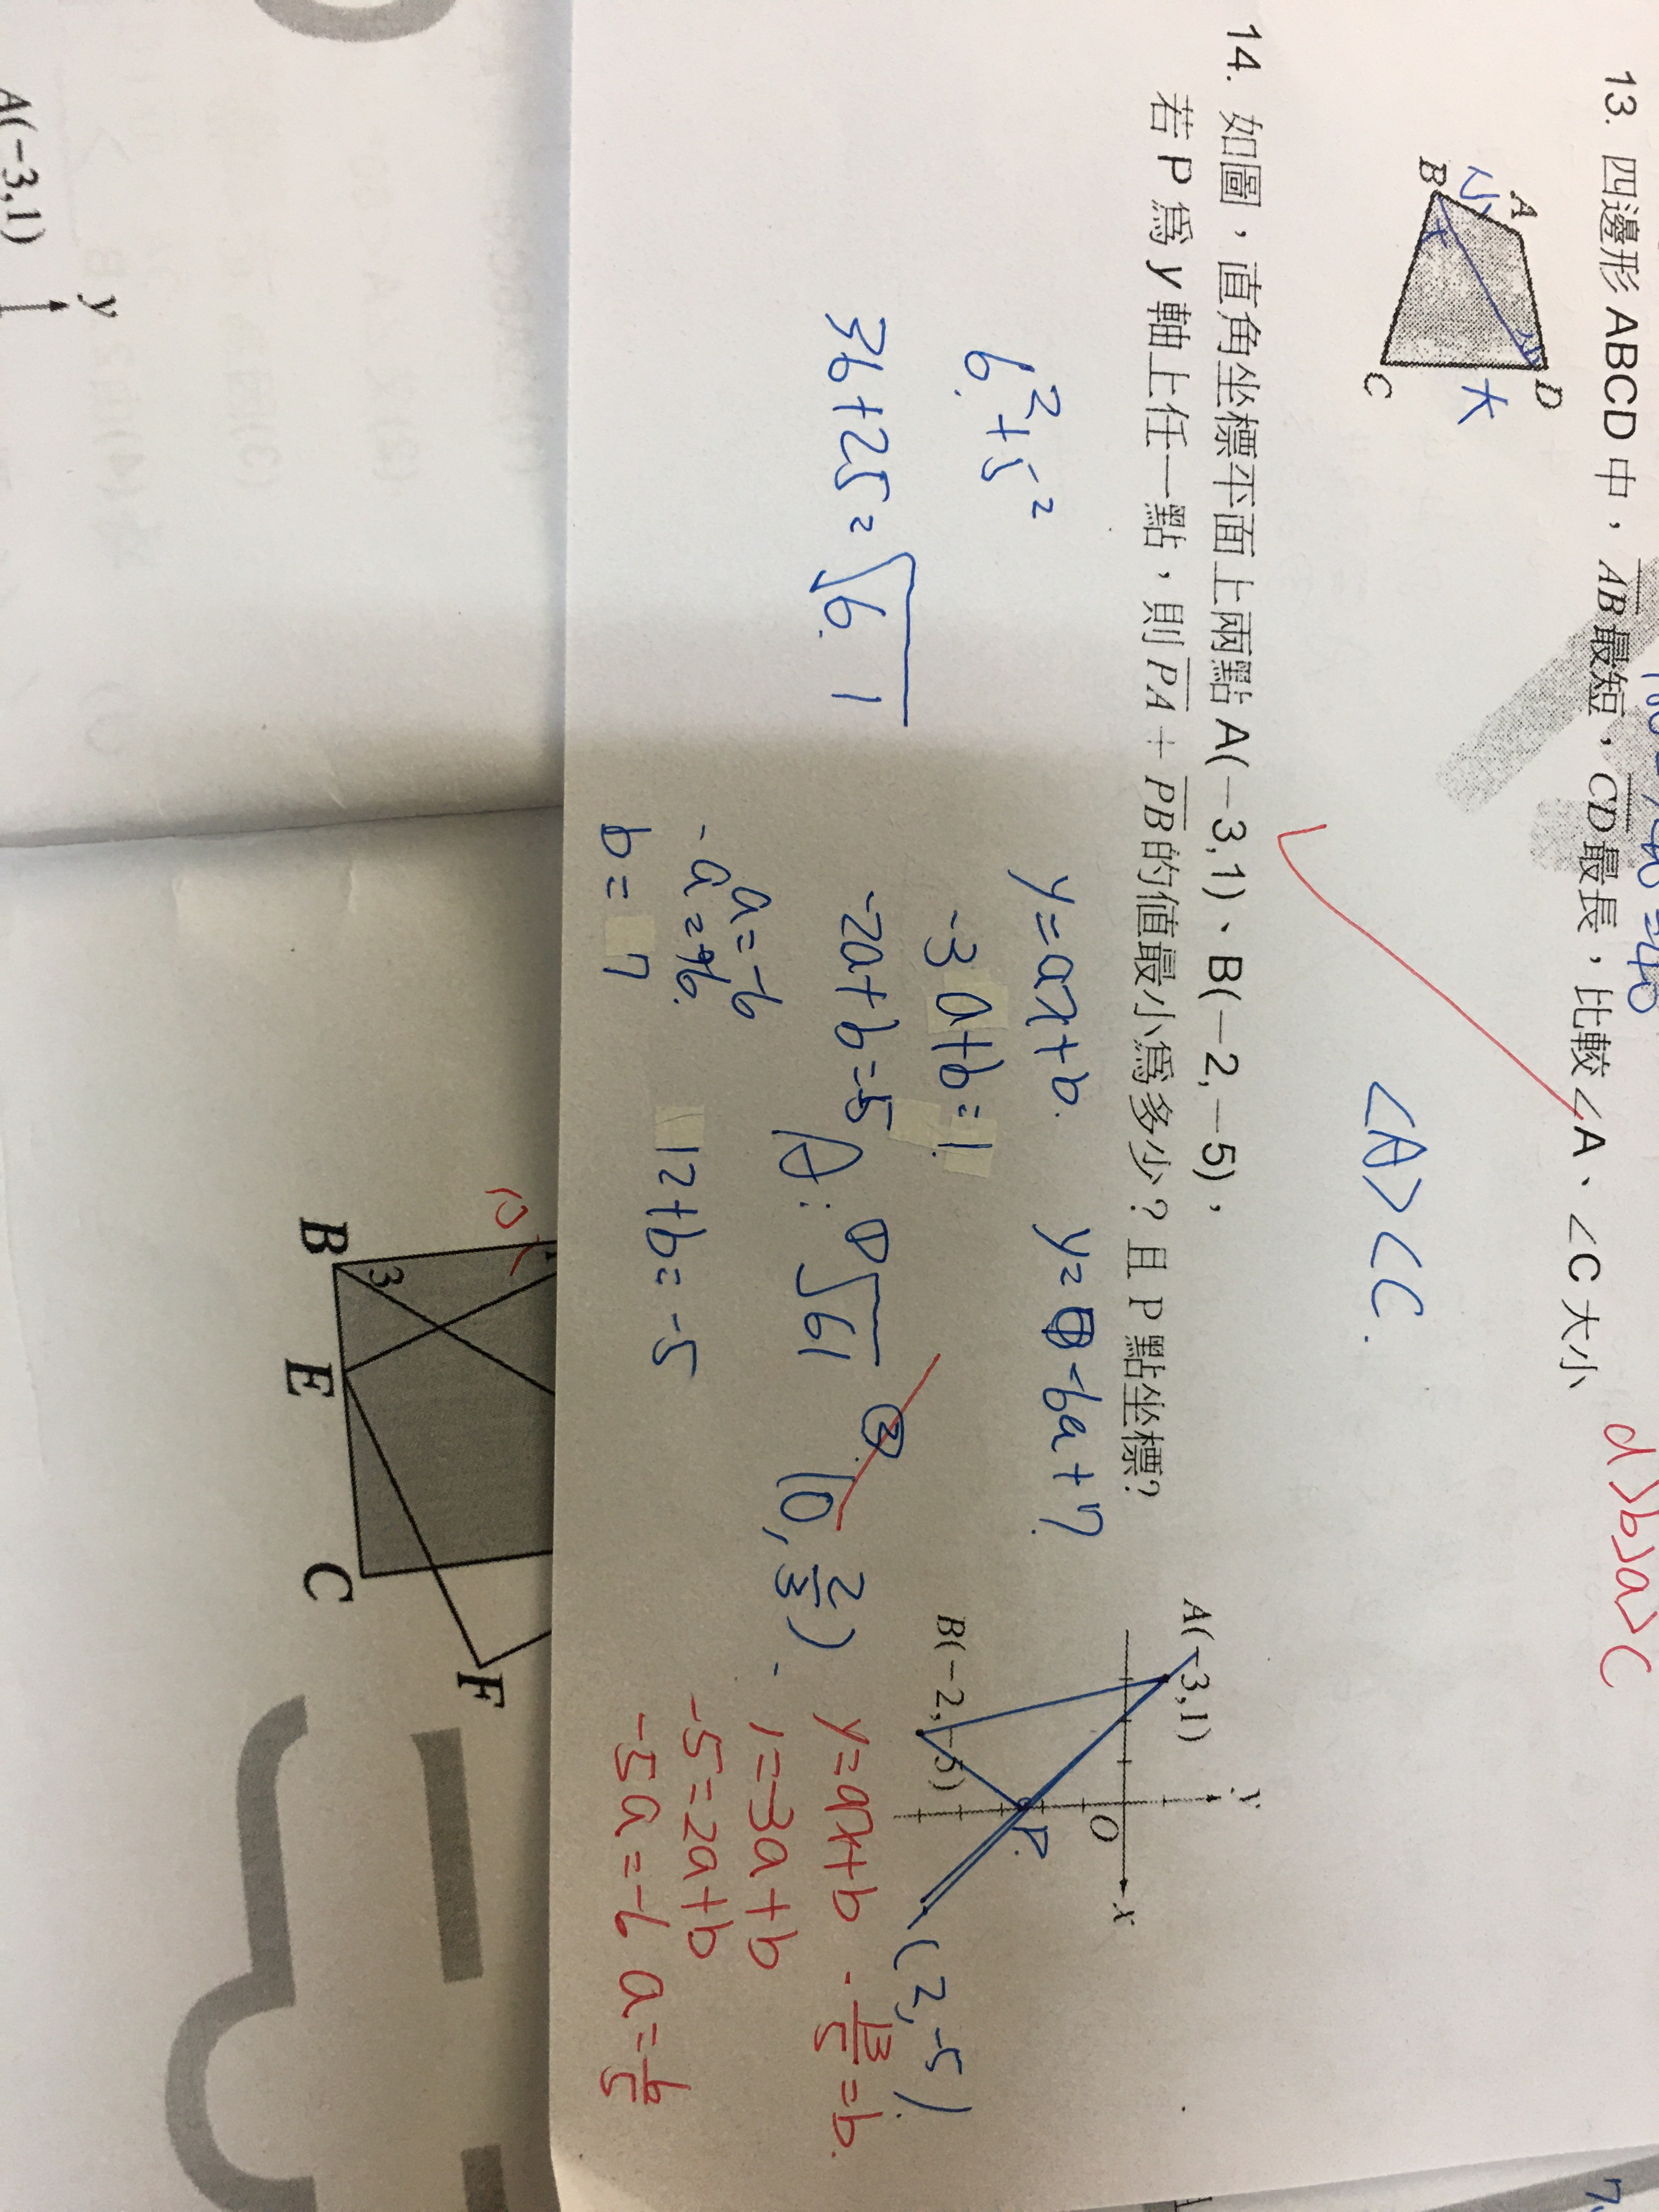 13. 四邊形 ABCD 中，AB 最短，CD 最長，比較∠A、∠C 大小
d>b>a>c
A
小
B
D
大
C
<A><C.
14. 如圖，直角坐標平面上兩點 A(－3,1)、B(－2,－5)，
若 P 為 y 軸上任一點，則 PA + PB 的值最小為多少？且 P 點坐標?
y
A(-3,1)
O
x
P.
B(-2,-5)
(2,-5).
6²+5²
36+25=√61
y=ax+b.
y=-6a+7.
-3a+b=1.
-2a+b=-5
A: ① √61
②
a=-6
b= 7
12+b=-5
y=ax+b
-13/5=b.
1=-3a+b
-5=2a+b
-5a=-6
B
3
E
C
F
A(-3,1)
y